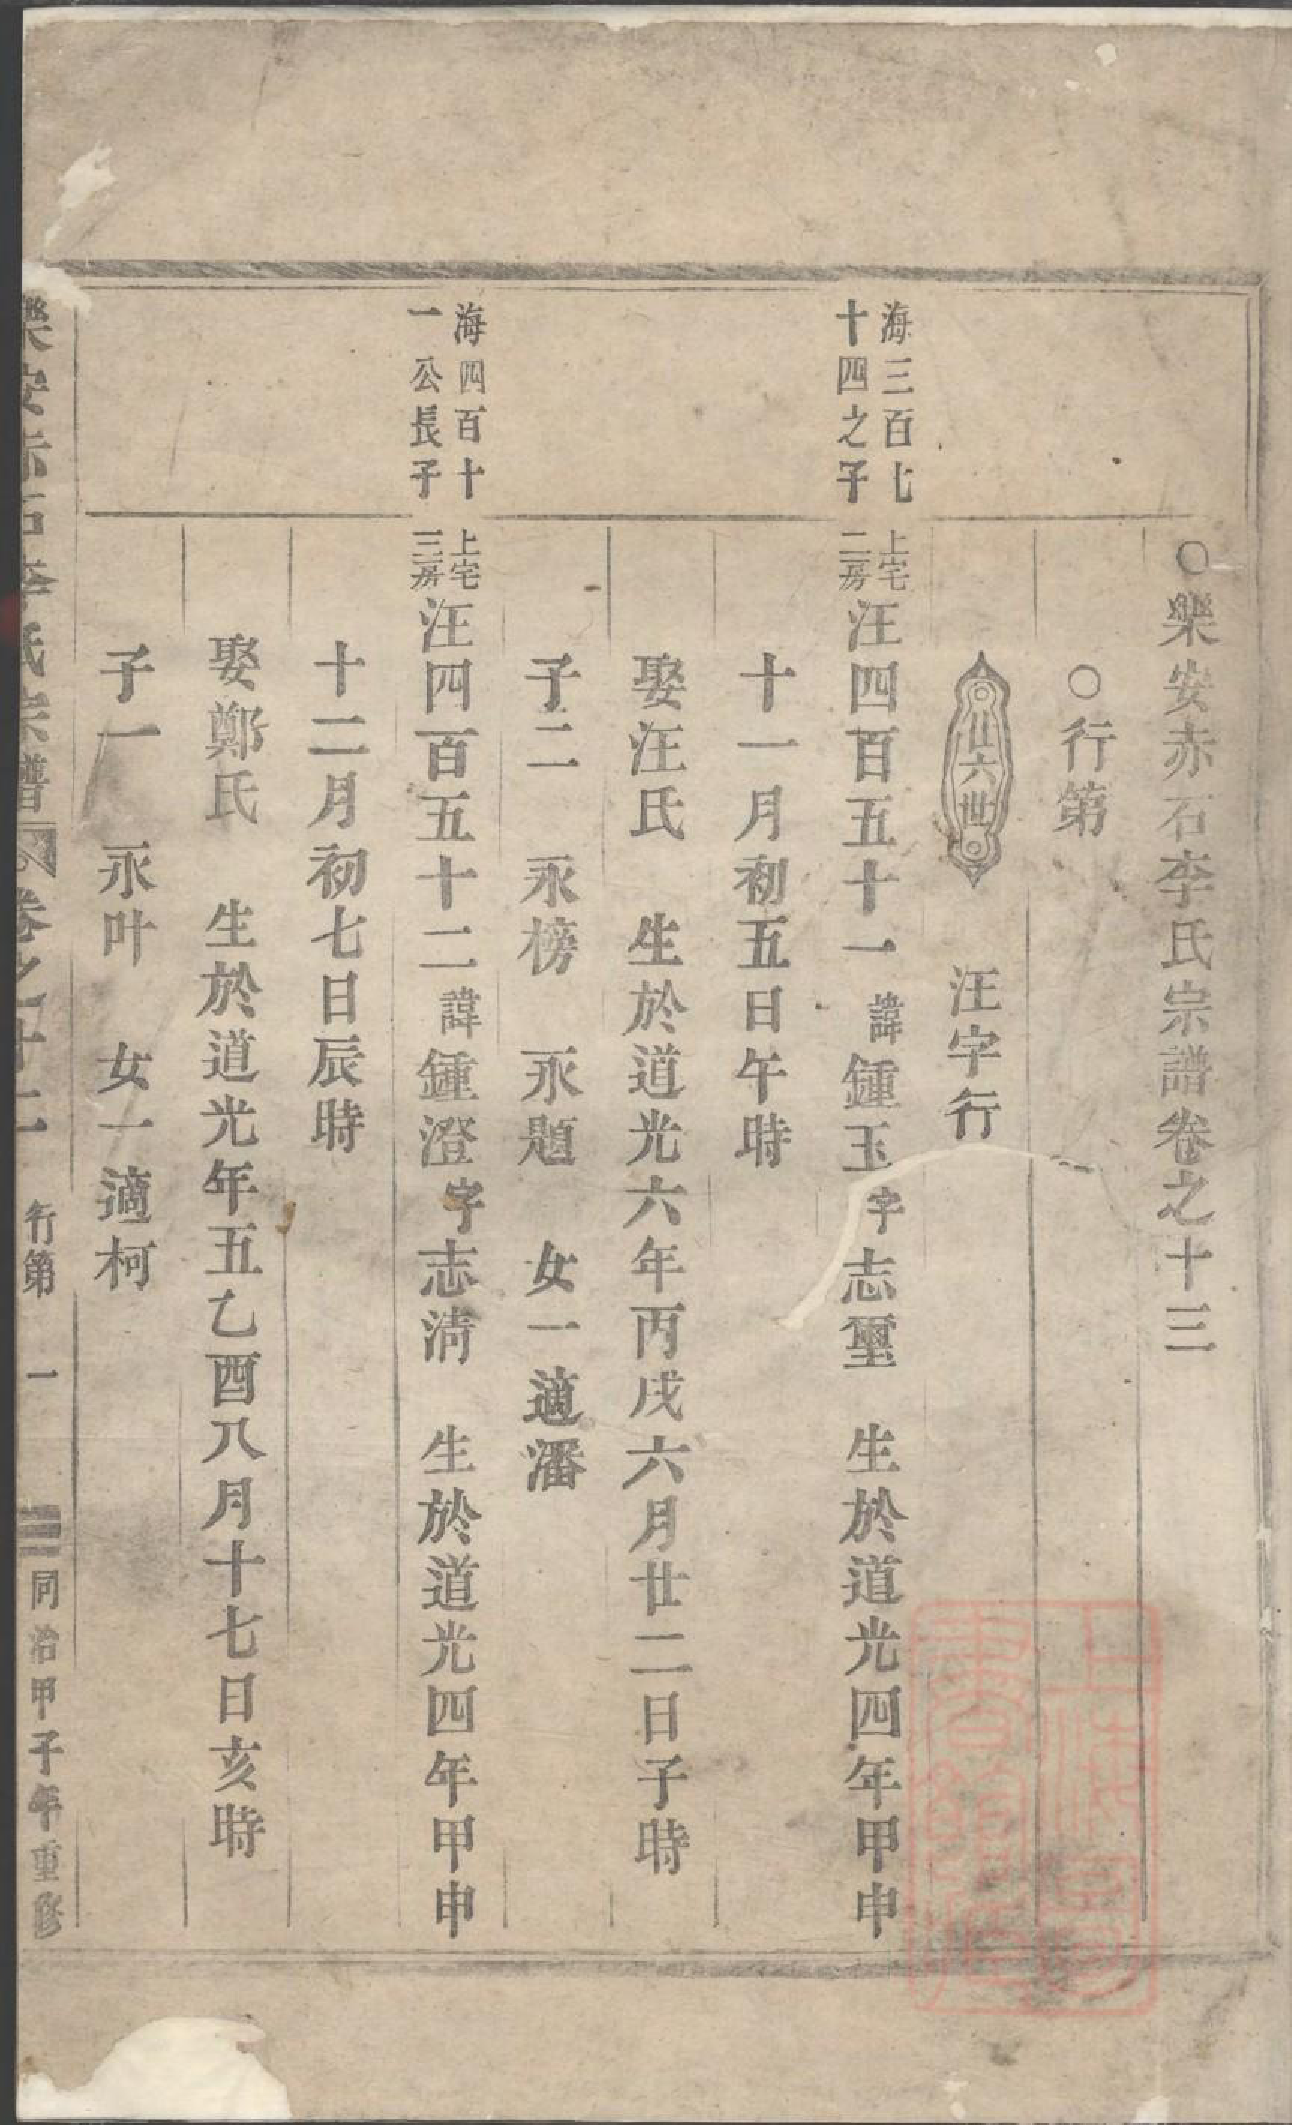 ○樂安赤石李氏宗譜卷之十三
○行第
卅六世 汪字行
海三百七
十四之子
上宅
二房
汪四百五十一 諱鍾玉字志璽 生於道光四年甲申
十一月初五日午時
娶汪氏 生於道光六年丙戌六月廿二日子時
子二 永榜 永題 女一適潘
海四百十
一公長子
上宅
三房
汪四百五十二 諱鍾澄字志淸 生於道光四年甲申
十二月初七日辰時
娶鄭氏 生於道光年五乙酉八月十七日亥時
子一 永叶 女一適柯
樂安赤石李氏宗譜 卷之十三 行第 一 同治甲子年重修
上海圖書館藏